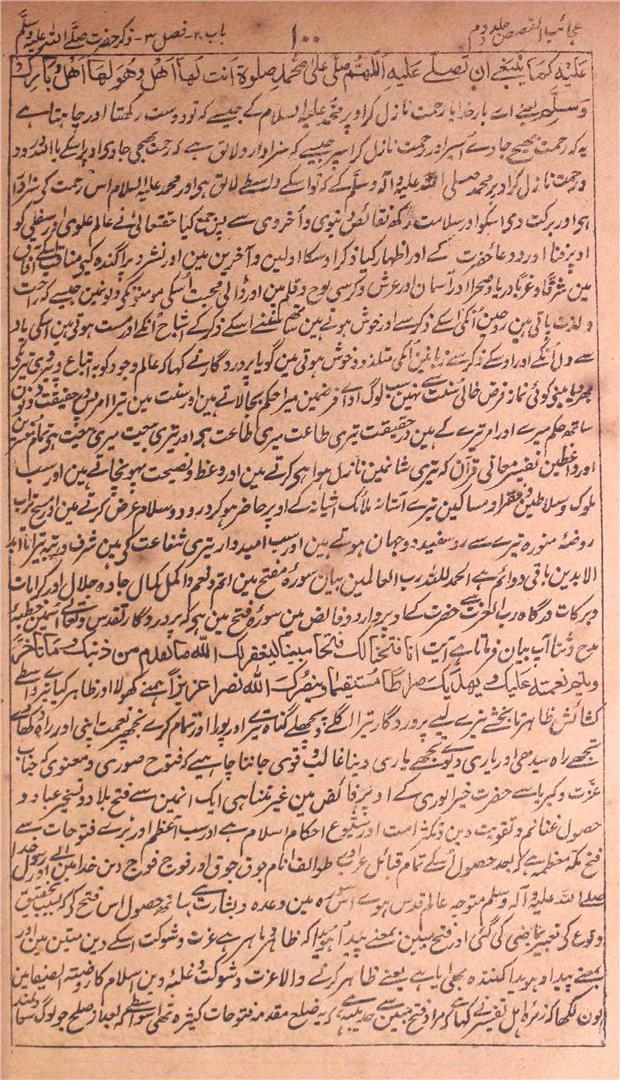 عجائب القصص جلد دوم ۱۰۰ باب ۲۰ - فصل ۳ - ذکر حضرت صلے اللہ علیہ وسلم
علیہ کما ینبغے ان تصلے علیہ اللھم صلی علی محمد صلوۃ انت لھا اھل وھو لھا اھل وبارک
وسلم یعنے اے بار خدایا رحمت نازل کر اوپر محمد علیہ السلام کے جیسے کہ تو دوست رکھتا اور چاہتا ہے
یہ کہ رحمت بھیجے جاوے اسپر اور رحمت نازل کر اسپر جیسے کہ سزاوار ولائق ہے کہ رحمت بھیجی جاوی اوپر اسکے یا اللہ درود
ورحمت نازل کر اوپر محمد صلی اللہ علیہ وآلہ وسلم کے کہ تو اسکے واسطے لائق ہی اور محمد علیہ السلام اس رحمت کی سزاوار
ہی اور برکت دی اسکو اور سلامت رکھ نقائص دنیوی و اخروی سے پس جمع کیا حقتعالی نے عالم علوی اور سفلی کو
اوپر ثنا اور دعا حضرت کے اور اظہار کیا ذکر اوسکا اولین و آخرین مین اور نشر و پراگندہ کیے مناقب اسکے آفاق
مین شرقا و غربا دریا و صحرا اور آسمان اور عرش و کرسی لوح و قلم مین اور ڈالی محبت اسکی مومنونکی دلونمین جیسے کہ راحت
و لذت پاتی ہین روحین انکی اسکے ذکر سے اور خوش ہوتے ہین ساتھ سننے اسکے ذکر کے اشباح انکے اور مست ہوتی ہین اسکی یاد
سے دل انکے اور اوسکے ذکر سے زبانین انکی متلذذ و خوش ہوتی مین گویا پروردگار نے کہا کہ عالم وجود کو بہ اتباع و پیروی تیری
بھر دیا مینے کوئی نماز فرض خالی سنت سے نہین سب لوگ ادای فرضمین میرا حکم بجالاتے ہین اور سنت مین تیرا امر پس حقیقت دونون
ساتھ حکم میرے اور امر تیرے کے ہین در حقیقت تیری طاعت میری طاعت ہی اور تیری بیعت میری بیعت ہی تمام مفسرین
اور واعظین تفسیر معانی قرآن کہ تیری شانمین نازل ہوا ہی کرتے ہین اور وعظ و نصیحت پہونچاتے ہین اور سب
ملوک و سلاطین و فقرا و مساکین تیرے آستانہ ملائک آشیانہ کے اوپر حاضر ہوکر درود و سلام عرض کرتے ہین اور مسح تراب
روضہ منورہ تیرے سے رو سفید دوجہان ہوتے ہین اور سب امیدوار تیری شفاعت کی ہین شرف و مرتبہ تیرا تا ابد
الابدین باقی و دائم ہے الحمد للہ رب العالمین بیان سورۂ مفتح مین اتم و نعم و اکمل کمال جاہ و جلال اور کرامات
وبرکات درگاہ رب العزت سے حضرت کے اوپر وارد و فائض ہین سورۂ فتح مین ہی کہ پروردگار تقدس و تعالے جسمین خطبہ
مدح و ثنا آپ بیان فرماتا ہے آیت انا فتحنا لک فتحا مبینا لیغفر لک اللہ ما تقدم من ذنبک وما تأخر
ویتم نعمتہ علیک ویھدیک صراطا مستقیما وینصرک اللہ نصرا عزیزا یعنے ہمنے کھولا اور ظاہر کیا تیرے واسطے
کشائش ظاہر تا بخشے تیرے لیے پروردگار تیرا اگلے و پچھلے گناہ تیرے اور پورا اور تمام کرے تجھپر نعمت اپنی اور راہ دکھاوے
تجھے راہ سیدھی اور یاری دیوے تجھے یاری دینا غالب و قوی جاننا چاہیے کہ فتوح صوری و معنوی کہ جناب
عزت و کبریا سے حضرت خیر الوری کے اوپر فائض ہین غیر متناہی ایک انمین سے فتح بلاد و تسخیر عباد و
حصول غنائم و تقویت دین و کثرت امت اور شیوع احکام اسلام ہے اور سب سے اعظم اور بڑے فتوحات سے
فتح مکہ معظمہ ہے کہ بعد حصول اسکے تمام قبائل عرب و طوائف انام جوق جوق اور فوج فوج دین خدا مین آئے اور رسول خدا
صلے اللہ علیہ وآلہ وسلم متوجہ عالم قدس ہوے اس سورہ مین وعدہ و بشارت ہے ساتھ حصول اس فتح کے کہ بسبب تحقق
وقوع کی تعبیر بماضی کی گئی اور فتح مبین بمعنے پیدا و ہویدا کہ ظاہر و باہر ہے عزت و شوکت اسکے دین متین مین اور
بمعنے پیدا و ہویدا کنندہ بھی آیا ہے یعنے ظاہر کرنے والا عزت و شوکت و غلبۂ دین اسلام کا روضۃ الصفا مین
یون لکھا کہ زمرۂ اہل تفسیر نے کہا ہے کہ مراد فتح مبین سے صلح حدیبیہ ہے کہ یہ صلح مقدمہ فتوحات کثیرہ تھی اسواسطے کہ بعد از صلح جو لوگ